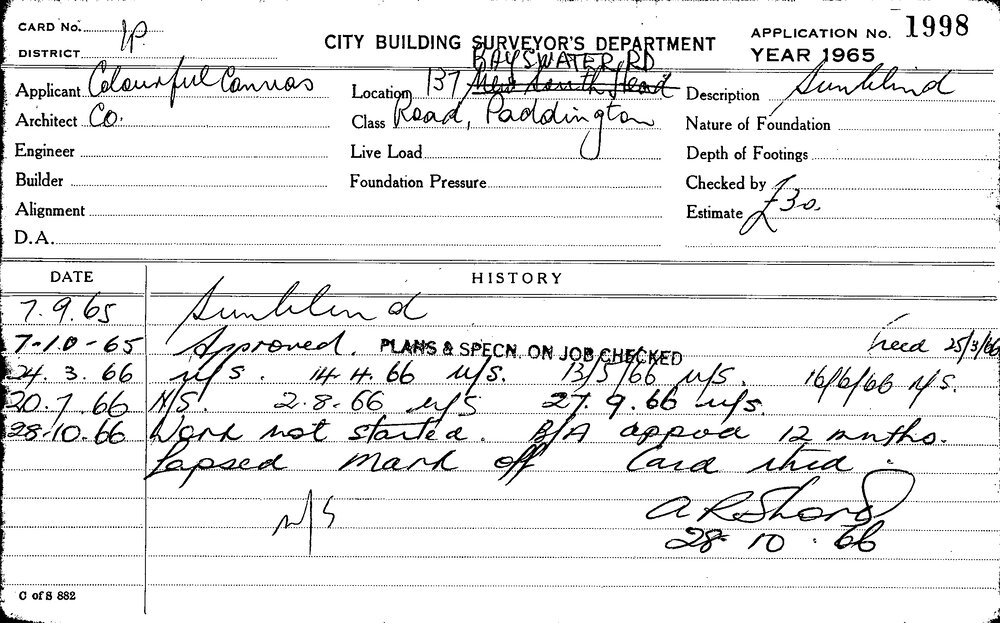 CARD No. 1P.
DISTRICT
CITY BUILDING SURVEYOR'S DEPARTMENT
APPLICATION No. 1998
YEAR 1965
BAYSWATER RD
Applicant Colourful Canvas
Location 137 New South Head
Description Sunblind
Architect Co.
Class Road, Paddington
Nature of Foundation
Engineer
Live Load
Depth of Footings
Builder
Foundation Pressure
Checked by
Alignment
Estimate £30.
D.A.
DATE
HISTORY
7.9.65 Sunblind
7-10-65 Approved. PLANS & SPECN. ON JOB CHECKED 25/3/66
24.3.66 n/s. 14.4.66 n/s. 13/5/66 n/s. 16/6/66 N/S.
20.7.66 N/S. 2.8.66 n/s 27.9.66 n/s.
28-10.66 Work not started. B/A appvd 12 mnths.
lapsed mark off Card
n/s
A R Shord
28-10.66
C of S 882